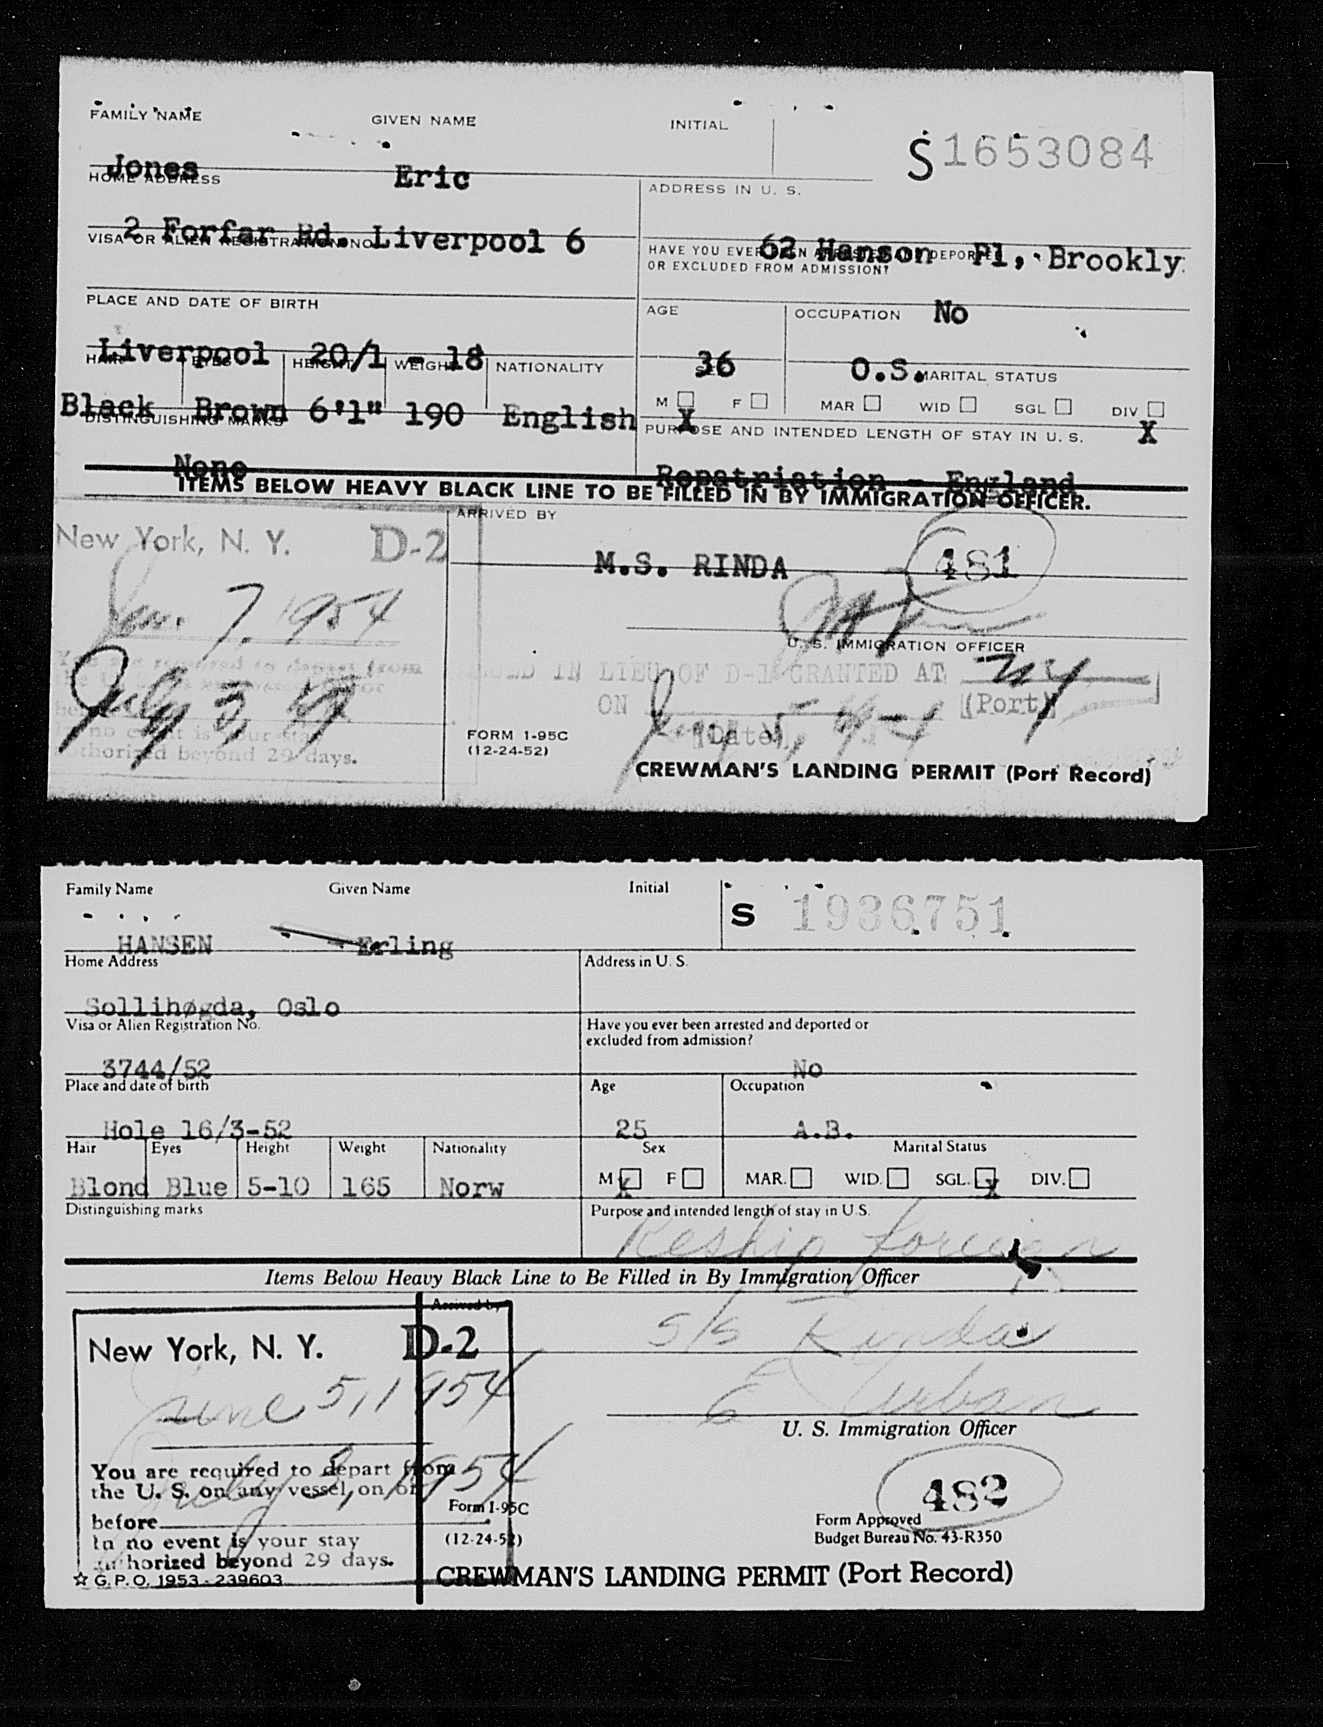 FAMILY NAME GIVEN NAME INITIAL
S1653084
Jones Eric
HOME ADDRESS ADDRESS IN U. S.
2 Forfar Rd. Liverpool 6 62 Hanson Pl, Brookly
VISA OR ALIEN REGISTRATION NO. HAVE YOU EVER BEEN ARRESTED AND DEPORTED
OR EXCLUDED FROM ADMISSION?
No
PLACE AND DATE OF BIRTH AGE OCCUPATION
Liverpool 20/1 - 18 36 O.S.
HAIR EYES HEIGHT WEIGHT NATIONALITY SEX MARITAL STATUS
M F MAR WID SGL DIV
Black Brown 6'1" 190 English X X
DISTINGUISHING MARKS PURPOSE AND INTENDED LENGTH OF STAY IN U. S.
None Repatriation - England
ITEMS BELOW HEAVY BLACK LINE TO BE FILLED IN BY IMMIGRATION OFFICER.
New York, N. Y. D-2 ARRIVED BY
M.S. RINDA 481
Jun. 7, 1954
U. S. IMMIGRATION OFFICER
You are required to depart from
IN LIEU OF D-1 GRANTED AT NY
(Port)
July 3, 54
ON July 5, 54
(Date)
no event is your stay
authorized beyond 29 days.
FORM I-95C
(12-24-52)
CREWMAN'S LANDING PERMIT (Port Record)
Family Name Given Name Initial
S 1936751
HANSEN Erling
Home Address Address in U. S.
Sollihøgda, Oslo
Visa or Alien Registration No. Have you ever been arrested and deported or
excluded from admission?
3744/52 No
Place and date of birth Age Occupation
Hole 16/3-52 25 A.B.
Hair Eyes Height Weight Nationality Sex Marital Status
M F MAR. WID. SGL. DIV.
Blond Blue 5-10 165 Norw X X
Distinguishing marks Purpose and intended length of stay in U.S.
Reship foreign
Items Below Heavy Black Line to Be Filled in By Immigration Officer
Arrived by
S/S Rinda
New York, N. Y. D-2
June 5, 1954
E Urban
U. S. Immigration Officer
You are required to depart from
the U. S. on any vessel, on or
before
July 3, 1954
482
In no event is your stay
authorized beyond 29 days.
☆ G.P.O. 1953-239603
Form I-95C
(12-24-52)
Form Approved
Budget Bureau No. 43-R350
CREWMAN'S LANDING PERMIT (Port Record)